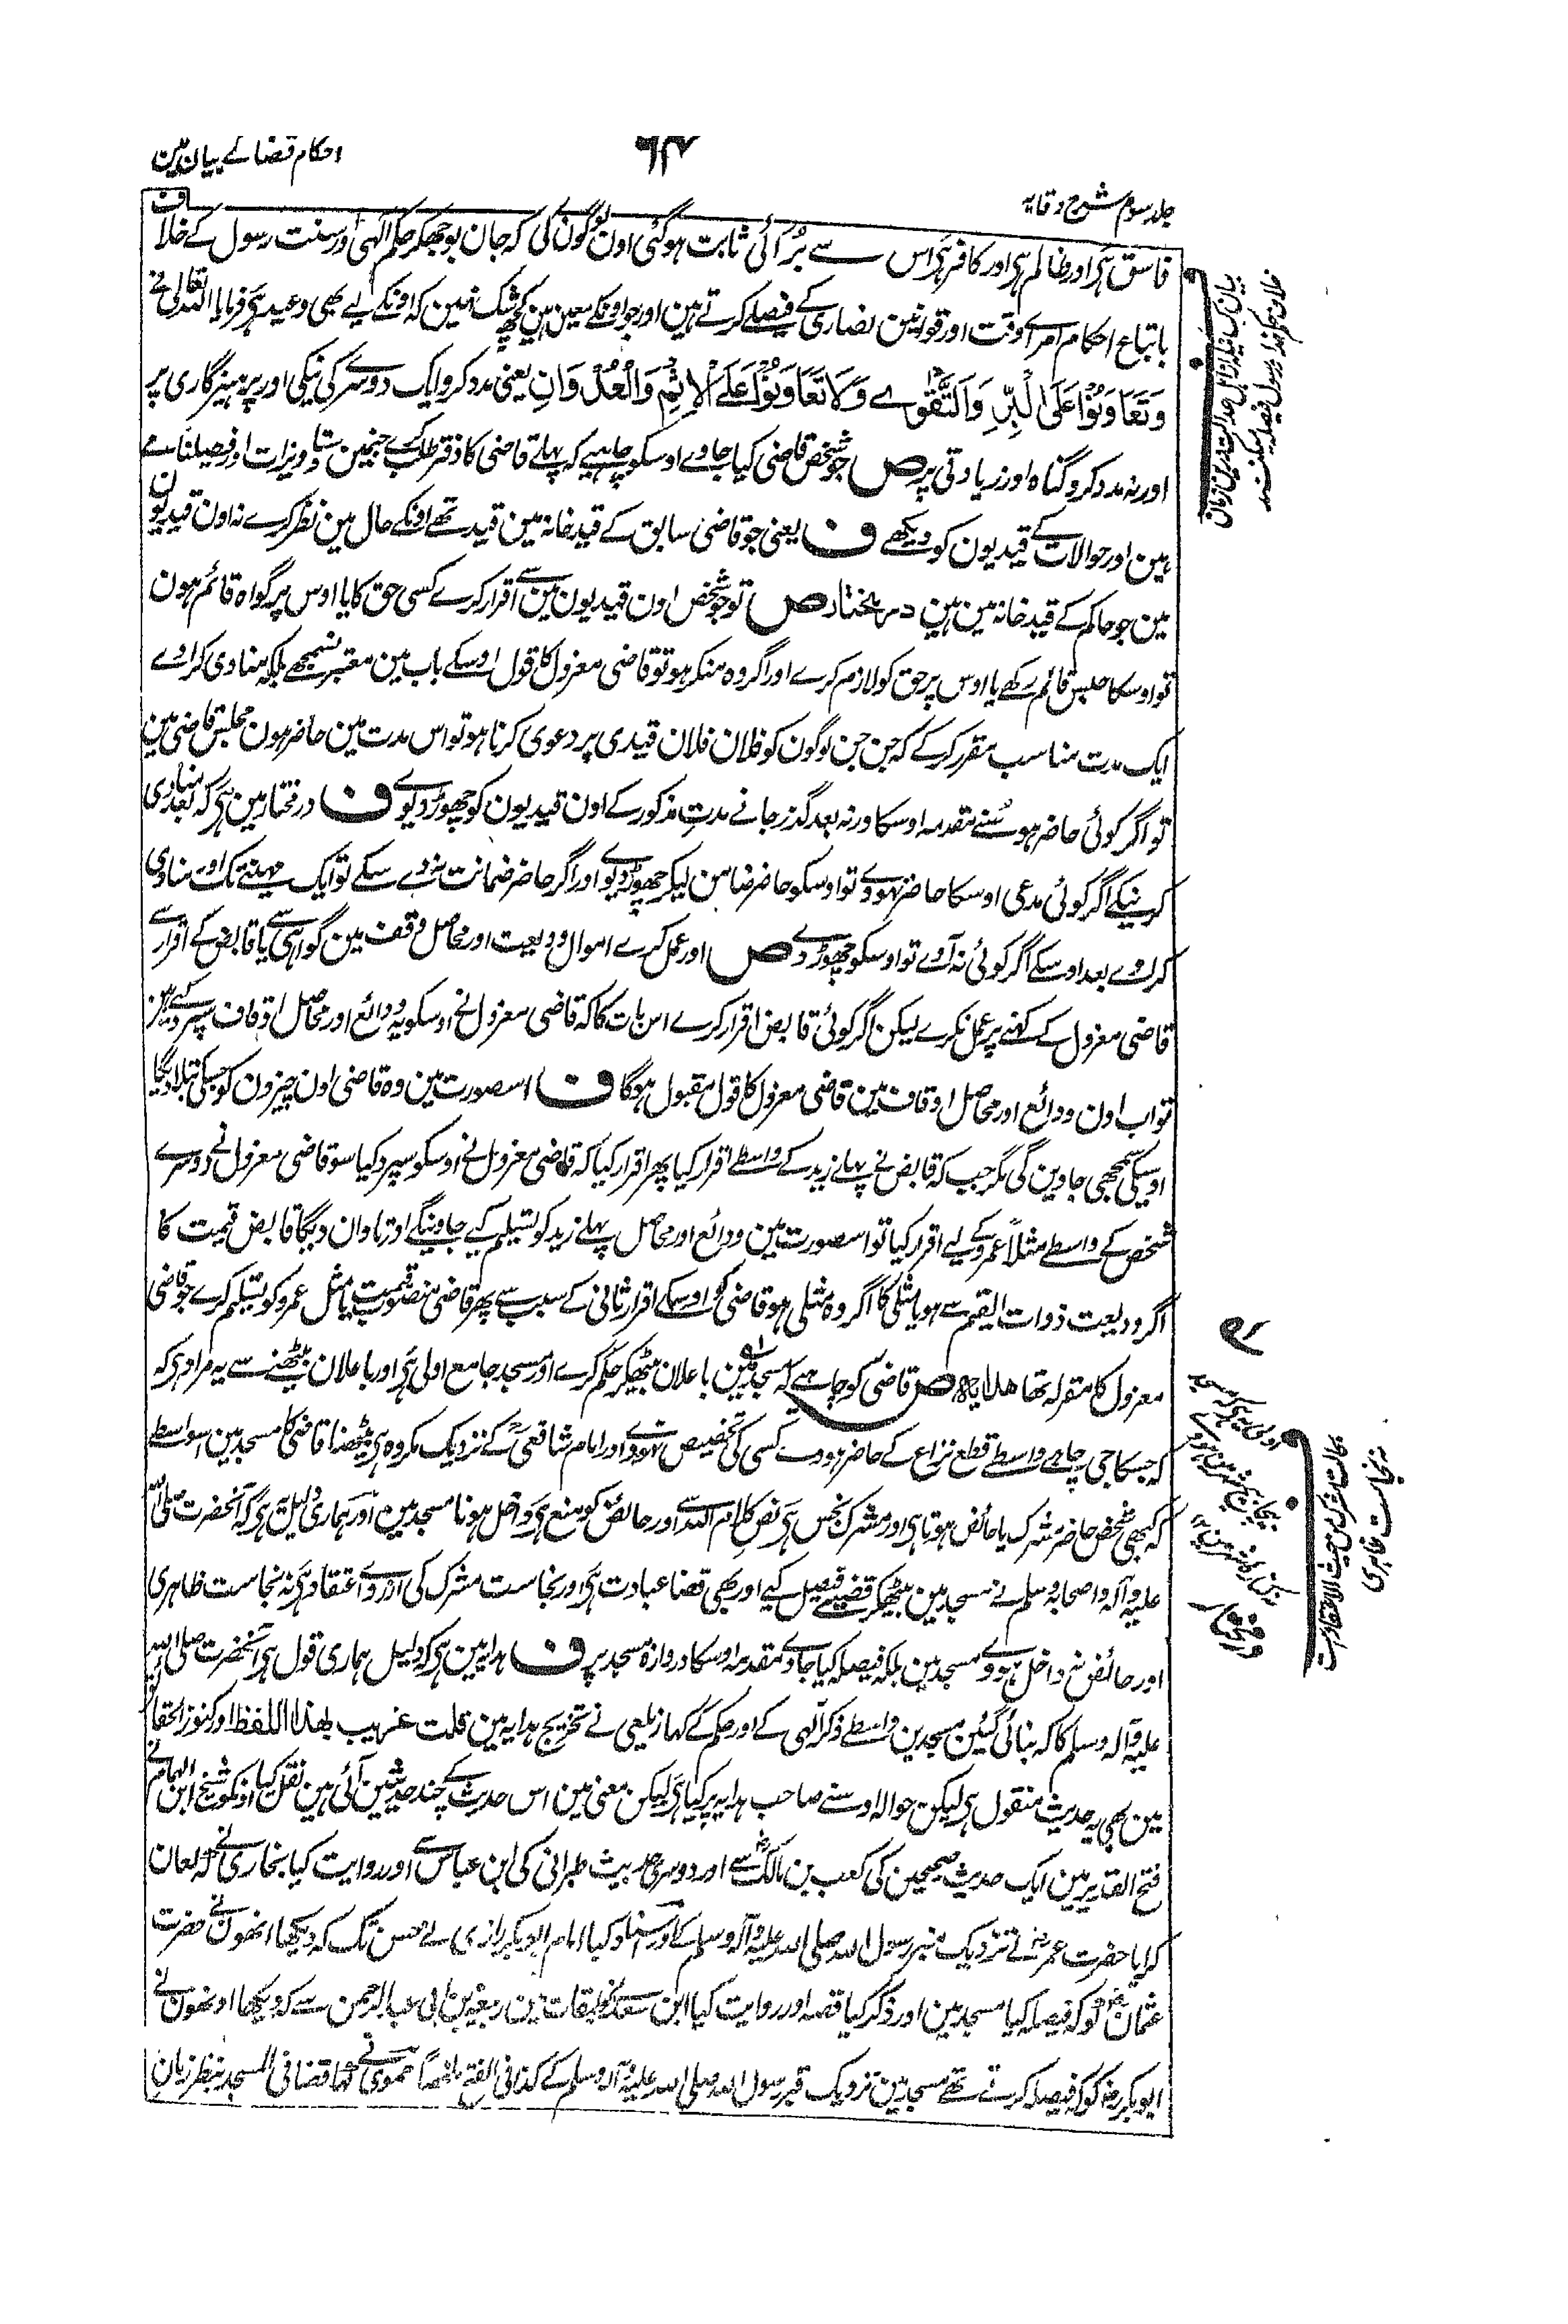 جلد سوم شرح وقایہ
۶۲۷
احکام قضا کے بیان مین
فاسق ہی اور ظالم ہی اور کافر ہی اس سے بُرائی ثابت ہو گئی اون لوگون کی کہ جان بوجھکر حکم الٰہی اور سنت رسول کے خلاف
باتباع احکام امراے وقت اور قوانین نصاری کے فیصلے کرتے ہین اور جو اونکے معین ہین کچھ شک نہین کہ اونکے لیے بھی وعید ہی فرمایا اللہ تعالی نے
وَتَعَاوَنُوْا عَلَی الْبِرِّ وَالتَّقْوٰے وَلَا تَعَاوَنُوْا عَلَے الْاِثْمِ وَالْعُدْوَانِ یعنی مدد کرو ایک دوسرے کی نیکی اور پرہیزگاری پر
اور نہ مدد کرو گناہ اور زیادتی پر ص جو شخص قاضی کیا جاوے اوسکو چاہیے کہ پہلے قاضی کا دفتر طلب کرے جسمین دستاویزات اور فیصلنامے
ہین اور حوالات کے قیدیون کو دیکھے ف یعنی جو قاضی سابق کے قیدخانہ مین قید تھے اونکے حال مین نظر کرے نہ اون قیدیون
مین جو حاکم کے قیدخانہ مین ہین درمختار ص تو جو شخص اون قیدیون مین سے اقرار کرے کسی حق کا یا اوس پر گواہ قائم ہون
تو اوسکا حبس قائم رکھے یا اوس پر حق کو لازم کرے اور اگر وہ منکر ہو تو قاضی معزول کا قول اوسکے باب مین معتبر نسمجھے بلکہ منادی کراوے
ایک مدت مناسب مقرر کرکے کہ جن جن لوگون کو فلان فلان قیدی پر دعوی کرنا ہو تو اس مدت مین حاضر ہون مجلس قاضی مین
تو اگر کوئی حاضر ہو سُنے مقدمہ اوسکا ورنہ بعد گذر جانے مدت مذکور کے اون قیدیون کو چھوڑ دیوے ف درمختار مین ہی کہ بعد منادی
کرنیکے اگر کوئی مدعی اوسکا حاضر نہووے تو اوسکو حاضر ضامن لیکر چھوڑ دیوے اور اگر حاضر ضمانت نہ دے سکے تو ایک مہینے تک اور منادی
کراوے بعد اوسکے اگر کوئی نہ آوے تو اوسکو چھوڑ دے ص اور عمل کرے اموال ودیعت اور محاصل وقف مین گواہی سے یا قابض کے اقرار سے
قاضی معزول کے کہنے پر عمل نکرے لیکن اگر کوئی قابض اقرار کرے اس بات کا کہ قاضی معزول نے اوسکو یہ ودائع اور محاصل اوقاف سپرد کیے ہین
تو اب اون ودائع اور محاصل اوقاف مین قاضی معزول کا قول مقبول ہوگا ف اس صورت مین وہ قاضی اون چیزون کو جسکی بتلاویگا
اوسیکی سمجھی جاوین گی مگر جب کہ قابض نے پہلے زید کے واسطے اقرار کیا پھر اقرار کیا کہ قاضی معزول نے اوسکو سپرد کیا سو قاضی معزول نے دوسرے
شخص کے واسطے مثلاً عمرو کے لیے اقرار کیا تو اس صورت مین ودائع اور محاصل پہلے زید کو تسلیم کیے جاوینگے اور تاوان دیگا قابض قیمت کا
اگر ودیعت ذوات القیم سے ہو یا مثلی کا اگر وہ مثلی ہو قاضی کو اوسکے اقرار ثانی کے سبب سے پھر قاضی منصوب قیمت یا مثل عمرو کو تسلیم کرے جو قاضی
معزول کا مقرلہ تھا ھدایہ ص قاضی کو چاہیے کہ مسجد مین باعلان بیٹھکر حکم کرے اور مسجد جامع اولی ہی اور باعلان بیٹھنے سے یہ مراد ہی کہ
کہ جسکا جی چاہے واسطے قطع نزاع کے حاضر ہووے کسی کی تخصیص نہووے اور امام شافعی کے نزدیک مکروہ ہی بیٹھنا قاضی کا مسجد مین اسواسطے
کہ کبھی شخص حاضر مشرک یا حائض ہوتا ہی اور مشرک نجس ہی نص کلام اللہ سے اور حائض کو منع ہی داخل ہونا مسجد مین اور ہماری دلیل یہ ہی کہ آنحضرت صلی اللہ
علیہ وآلہ واصحابہ وسلم نے مسجد مین بیٹھکر قضیے فیصل کیے اور بھی قضا عبادت ہی اور نجاست مشرک کی از روے اعتقاد ہی نہ نجاست ظاہری
اور حائض نہ داخل ہووے مسجد مین بلکہ فیصلہ کیا جاوے مقدمہ اوسکا دروازہ مسجد پر ف ہدایہ مین ہی کہ دلیل ہماری قول ہی آنحضرت صلی اللہ
علیہ وآلہ وسلم کا کہ بنائی گئین مسجدین واسطے ذکر آلہی کے اور حکم کے کہا زیلعی نے تخریج ہدایہ مین قلت غریب بھذا اللفظ اور کنوز الحقائق
مین بھی یہ حدیث منقول ہی لیکن حوالہ اوسنے صاحب ہدایہ پر کیا ہی لیکن معنی مین اس حدیث کے چند حدیثین آئی ہین نقل کیا اونکو شیخ ابن الہمام نے
فتح القدیر مین ایک حدیث صحیحین کی کعب بن مالک سے اور دوسری حدیث طبرانی کی ابن عباس سے اور روایت کیا بخاری نے کہ لعان
کرایا حضرت عمر نے نزدیک منبر رسول اللہ صلی اللہ علیہ وآلہ وسلم کے اور اسناد کیا امام ابو بکر رازی نے حسن تک کہ دیکھا انھون نے حضرت
عثمان کو کہ فیصلہ کیا مسجد مین اور ذکر کیا قصہ اور روایت کیا ابن سعد نے طبقات مین ربیعہ بن ابی عبد الرحمن سے کہ دیکھا اونھون نے
ابو بکر کو کہ فیصلہ کرتے تھے مسجد مین نزدیک قبر رسول اللہ صلی اللہ علیہ وآلہ وسلم کے کذا فی الفتح ملخصاً حموی نے کہا قضا فی المسجد بنظر زبان
بیان اہل عدالت درین زمان
خلاف حکم خدا و رسول فیصلہ میکنند
نہ نجاست ظاہری